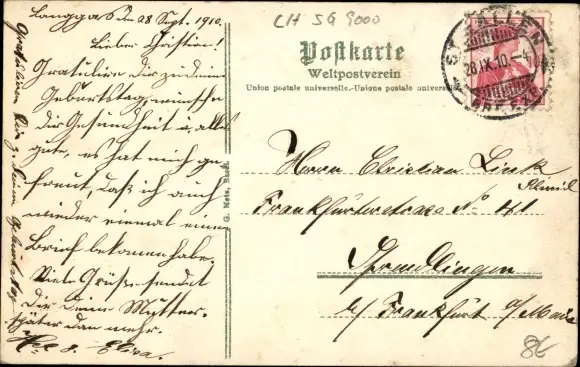 Langgass den 28 Sept. 1910.
Lieber Christian!
Gratuliere dir zu deinem
Geburtstag, wünsche
dir Gesundheit u. alles
gute, es hat mich ge
freut, daß ich auch
wieder einmal einen
Brief bekommen habe.
Viele Grüße sendet
Dir deine Mutter.
später dann mehr.
Elisa.
CH SG 9000
Postkarte
Weltpostverein
Union postale universelle.-Unione postale univers
ST. GALLEN
28.IX.10.-4
G. Metz, Basel.
Herrn Christian Link
Frankfurterstrasse No 41
Sprendlingen
b/ Frankfurt a/Main
8€